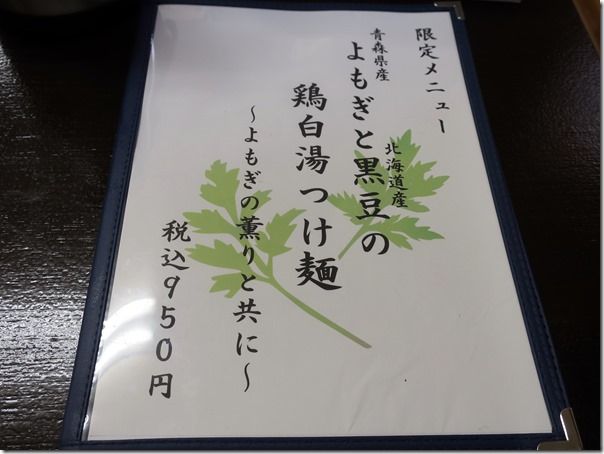 限定メニュー
青森県産
北海道産
よもぎと黒豆の
鶏白湯つけ麺
～よもぎの薫りと共に～
税込950円